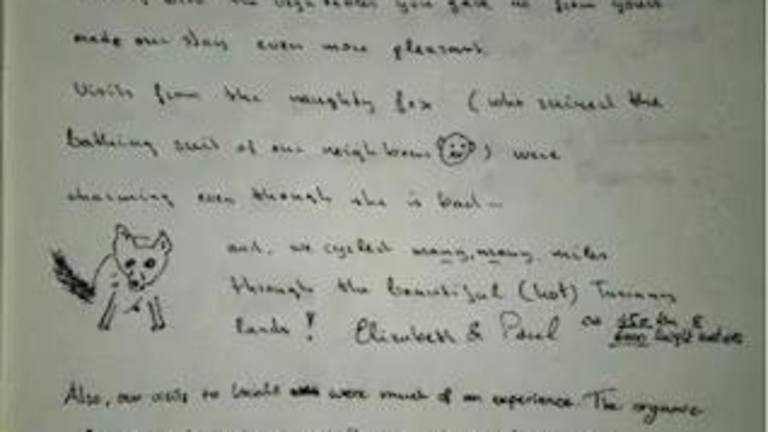 the vegetables you gave us from yours
made our stay even more pleasant.
Visits from the naughty fox (who ruined the
bathing suit of our neighbours ) were
charming even though she is bad...
and, we cycled many, many miles
through the beautiful (hot) Tuscany
lands! Elizabeth & Paul 450 km &
6000 height meters
Also, our visits to were much of an experience. The organic